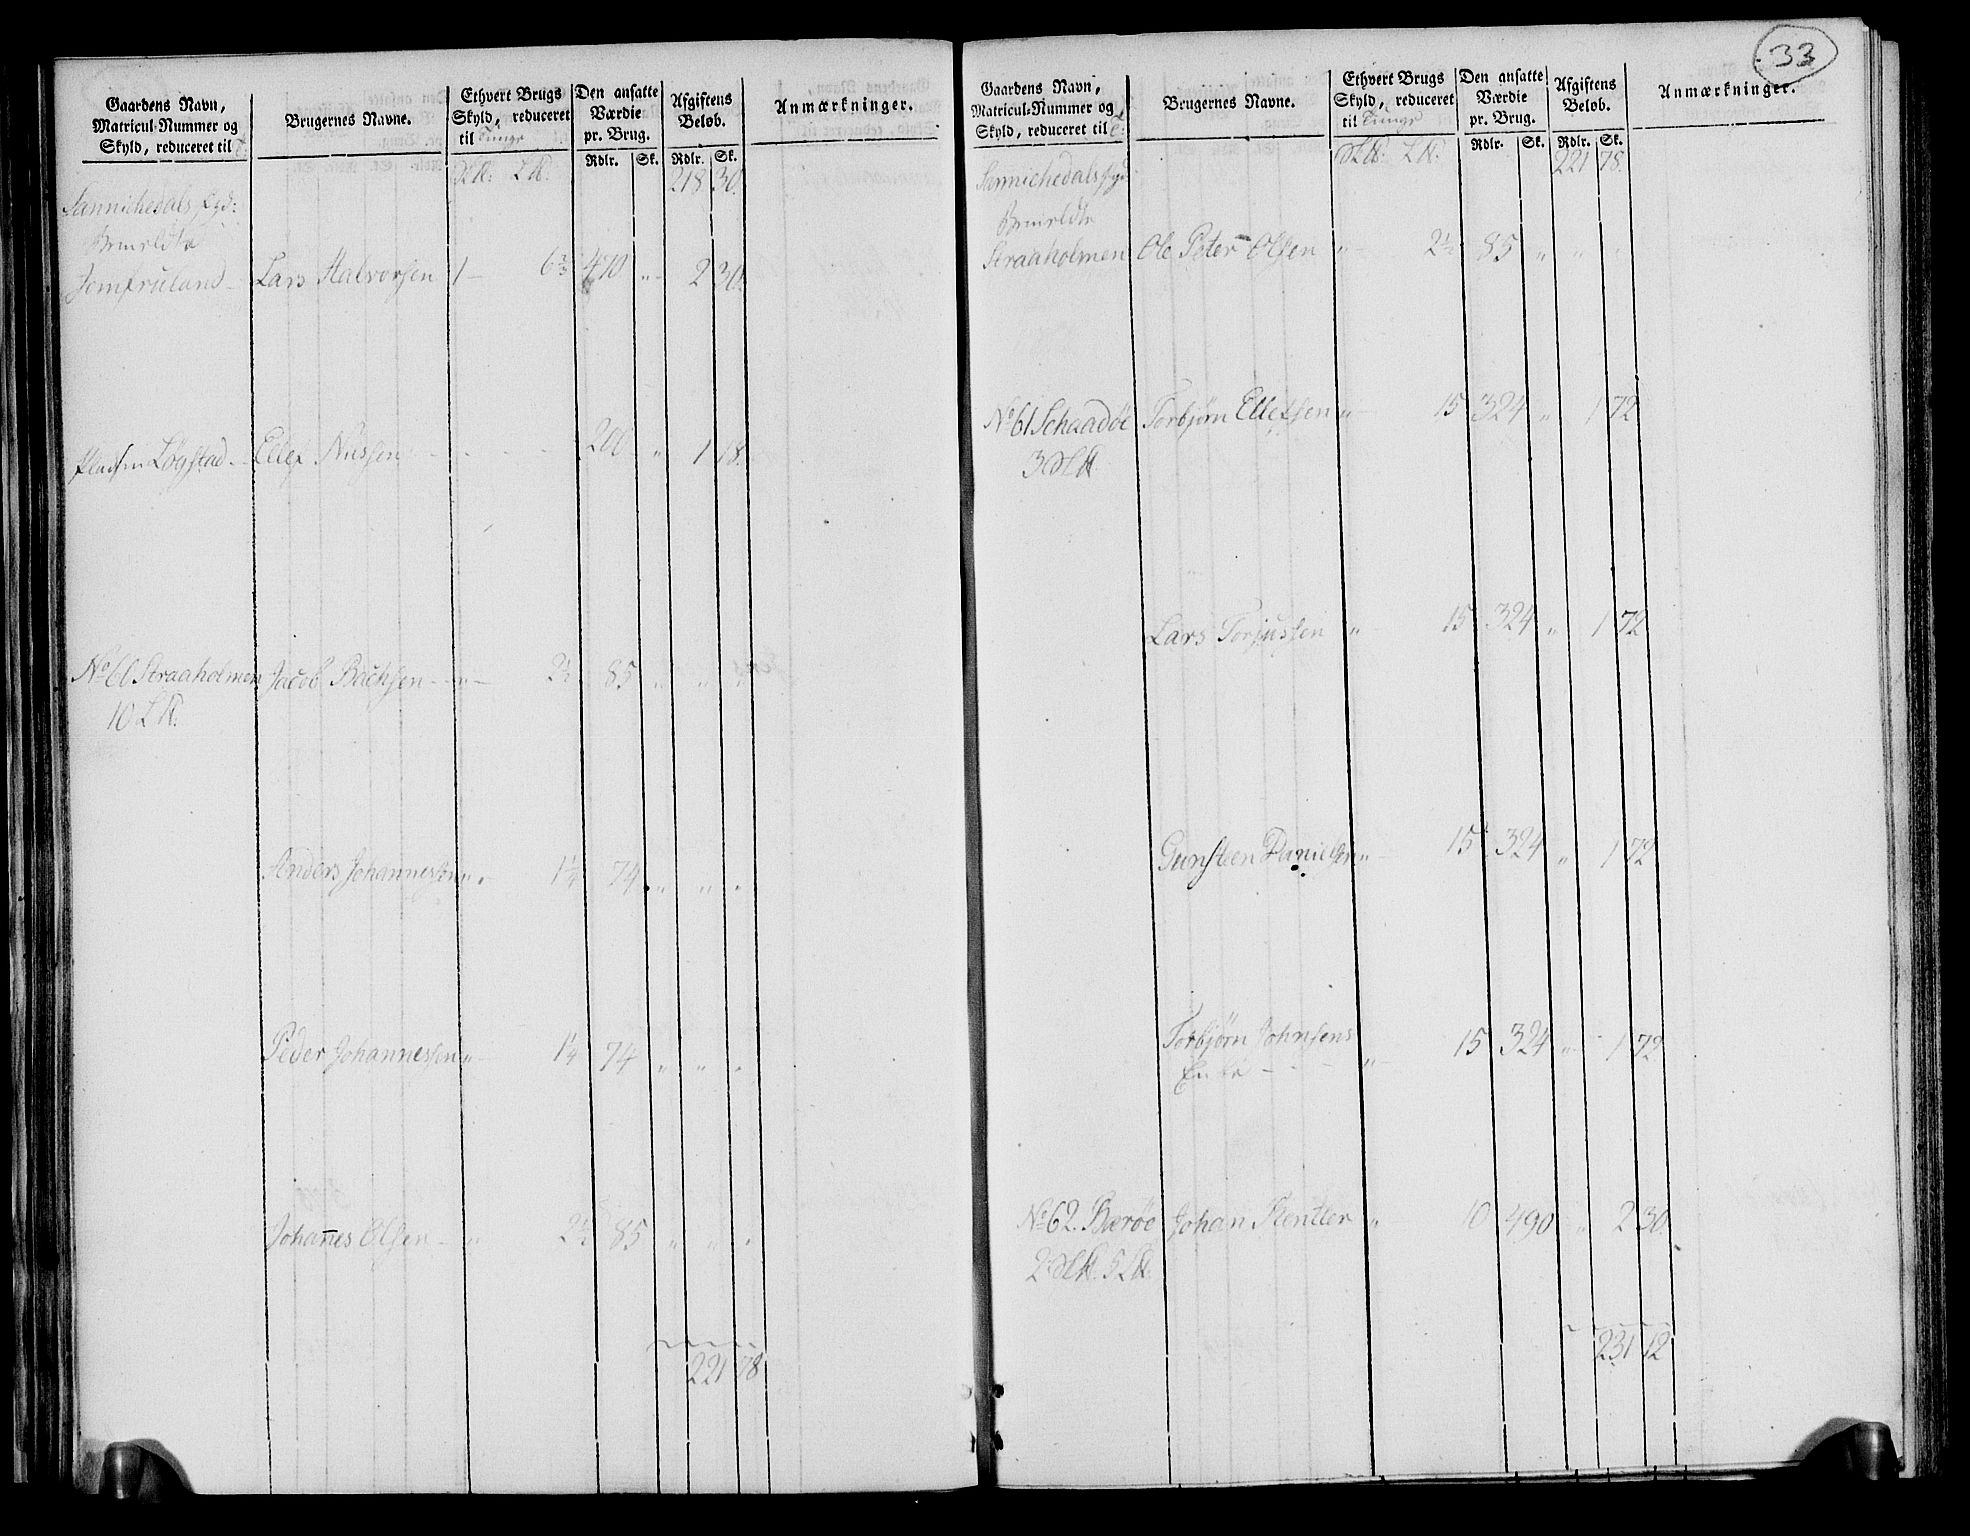 33
Gaardens Navn,
Matricul-Nummer og
Skyld, reduceret til
Brugernes Navne.
Ethvert Brugs
Skyld, reduceret
til Tunge
Den ansatte
Værdie
pr. Brug.
Afgiftens
Beløb.
Anmærkninger.
Rdlr. Sk. Rdlr. Sk.
218 30.
Sannichedals
Jomfruland Lars Halvorsen 1 - 470 " 2 30.
Løgstad Ellef Nilssen 200 " 1 18.
No 60 Straaholmen Jacob Bachsen " 2½ 85 " " "
10
Anders Johannessen " 1¼ 74 " " "
Peder Johannessen " 1¼ 74 " " "
Johannes Olsen " 2½ 85 " " "
221 78
Gaardens Navn,
Matricul-Nummer og
Skyld, reduceret til
Brugernes Navne.
Ethvert Brugs
Skyld, reduceret
til Tunge
Den ansatte
Værdie
pr. Brug.
Afgiftens
Beløb.
Anmærkninger.
Rdlr. Sk. Rdlr. Sk.
221 78.
Sannichedals
Straaholmen Ole Peter Olsen " 2½ 85 " " "
No 61 Schaadøe Torbjørn Ellefsen " 15 324 " 1 72
3
Lars Torjussen " 15 324 " 1 72
Gunsteen Danielsen " 15 324 " 1 72
Torbjørn Johnsens
Enke " 15 324 " 1 72
No 62. Barøe Johan " 10 490 " 2 30.
2 5
231 12